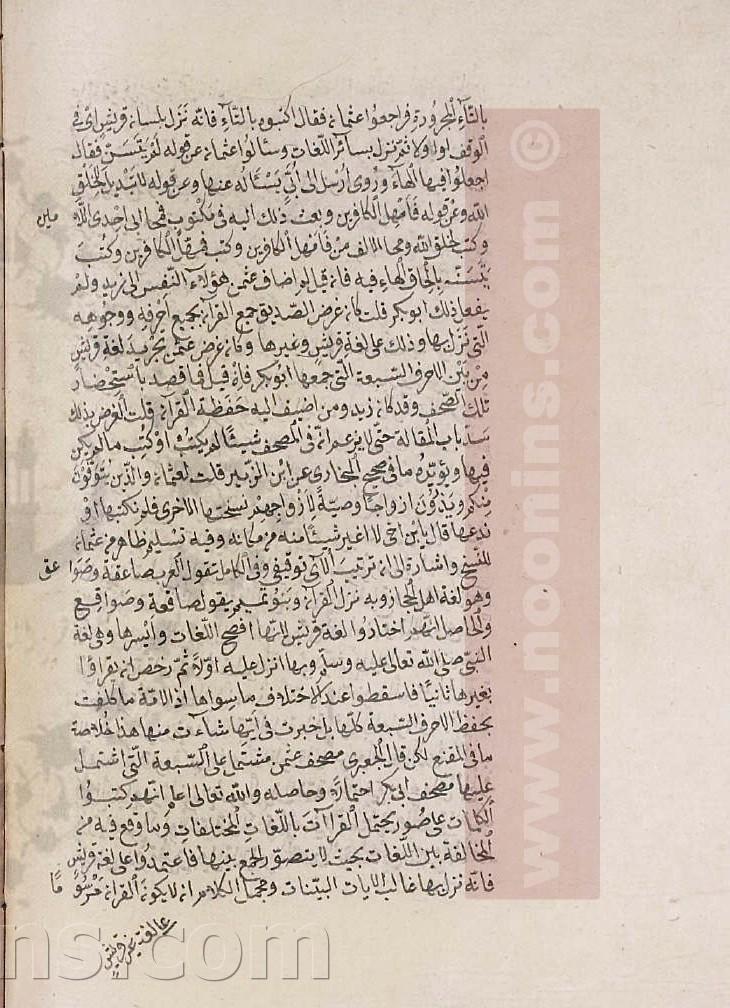 بالتآء المجرورة فراجعوا عثمان فقال اكتبوه بالتآء فانه نزل بلسان قريش اى فى
الوقف اوا ولا ثم نزل بسائر اللغات وسألوا عثمان عن قوله لم يتسن فقال
اجعلوا فيها الهآء وروى ارسل الى ابىّ يسئاله عنها وعن قوله لا تبديل للخلق
الله وعن قوله فامهل الكافرين وبعث ذلك اليه فى مكتوب فمحا لى احدى اللا مين
وكتب لخلق الله ومحا الالف من فامهل الكافرين وكتب فمهل الكافرين وكتب
يتسنه بالحاق الهاء فيه فان قيل لم اضاف عثمن هؤلاء النفس الى زيد ولم
يفعل ذلك ابو بكر قلت كان غرض الصديق جمع القرآن بجميع احرفه ووجوهه
التى نزل بها وذلك على لغة قريش وغيرها وكان غرض عثمن تجريد لغة قريش
من بين الاحرف السبعة التى جمعها ابو بكر فان قيل فما قصد باستحضار
تلك الصحف وقد كان زيد ومن اضيف اليه حفظة القرآن قلت الغرض بذلك
سد باب المقالة حتى لا يزعم ان فى المصحف شيئا لم يكتب او كتب ما لم يكن
فيها ويؤيده ما فى صحيح البخارى عن ابن الزبير قلت لعثمان والذين يتوفون
منكم ويذرون ازواجا وصية لازواجهم نسختها الاخرى فلم تكتبها او
ندعها قال يا ابن اخى لا اغير شيئا منه من مكانه وفيه تسليم ظاهر من عثمان
للنسخ واشارة الى ان ترتيب الآى توقيفى وفى الكامل تقول العرب صاعقة وصوا عق
وهو لغة اهل الحجاز وبه نزل القرآن وبنو تميم يقول صاقعة وصواقع
والحاصل انهم اختاروا لغة قريش لانها افصح اللغات وايسرها وهى لغة
النبى صلى الله تعالى عليه وسلم وبها انزل عليه اولا ثم رخص ان يقراؤا
بغيرها ثانيا فاسقطوا عند الاختلاف ما سواها اذ الامة ما كلفت
بحفظ الاحرف السبعة كلها بل خيرت فى ايتها شاءت منها هذا خلاصة
ما فى المقنع لكن قال الجعبرى مصحف عثمن مشتمل على السبعة التى اشتمل
عليها مصحف ابى بكر احتمالا وحاصله والله تعالى اعلم انهم كتبوا
الكلمات على صور يحتمل القراآت باللغات المختلفات وما وقع فيه من
المخالفة بين اللغات بحيث لا يتصور الجمع بينها فاعتمدوا على لغة قريش
فانه نزل بها غالب الايات البينات ومجمل الكلام ان لا يكون القرآن مرسو ما
على لغة غير قريش
© www.noonins.com
ns.com